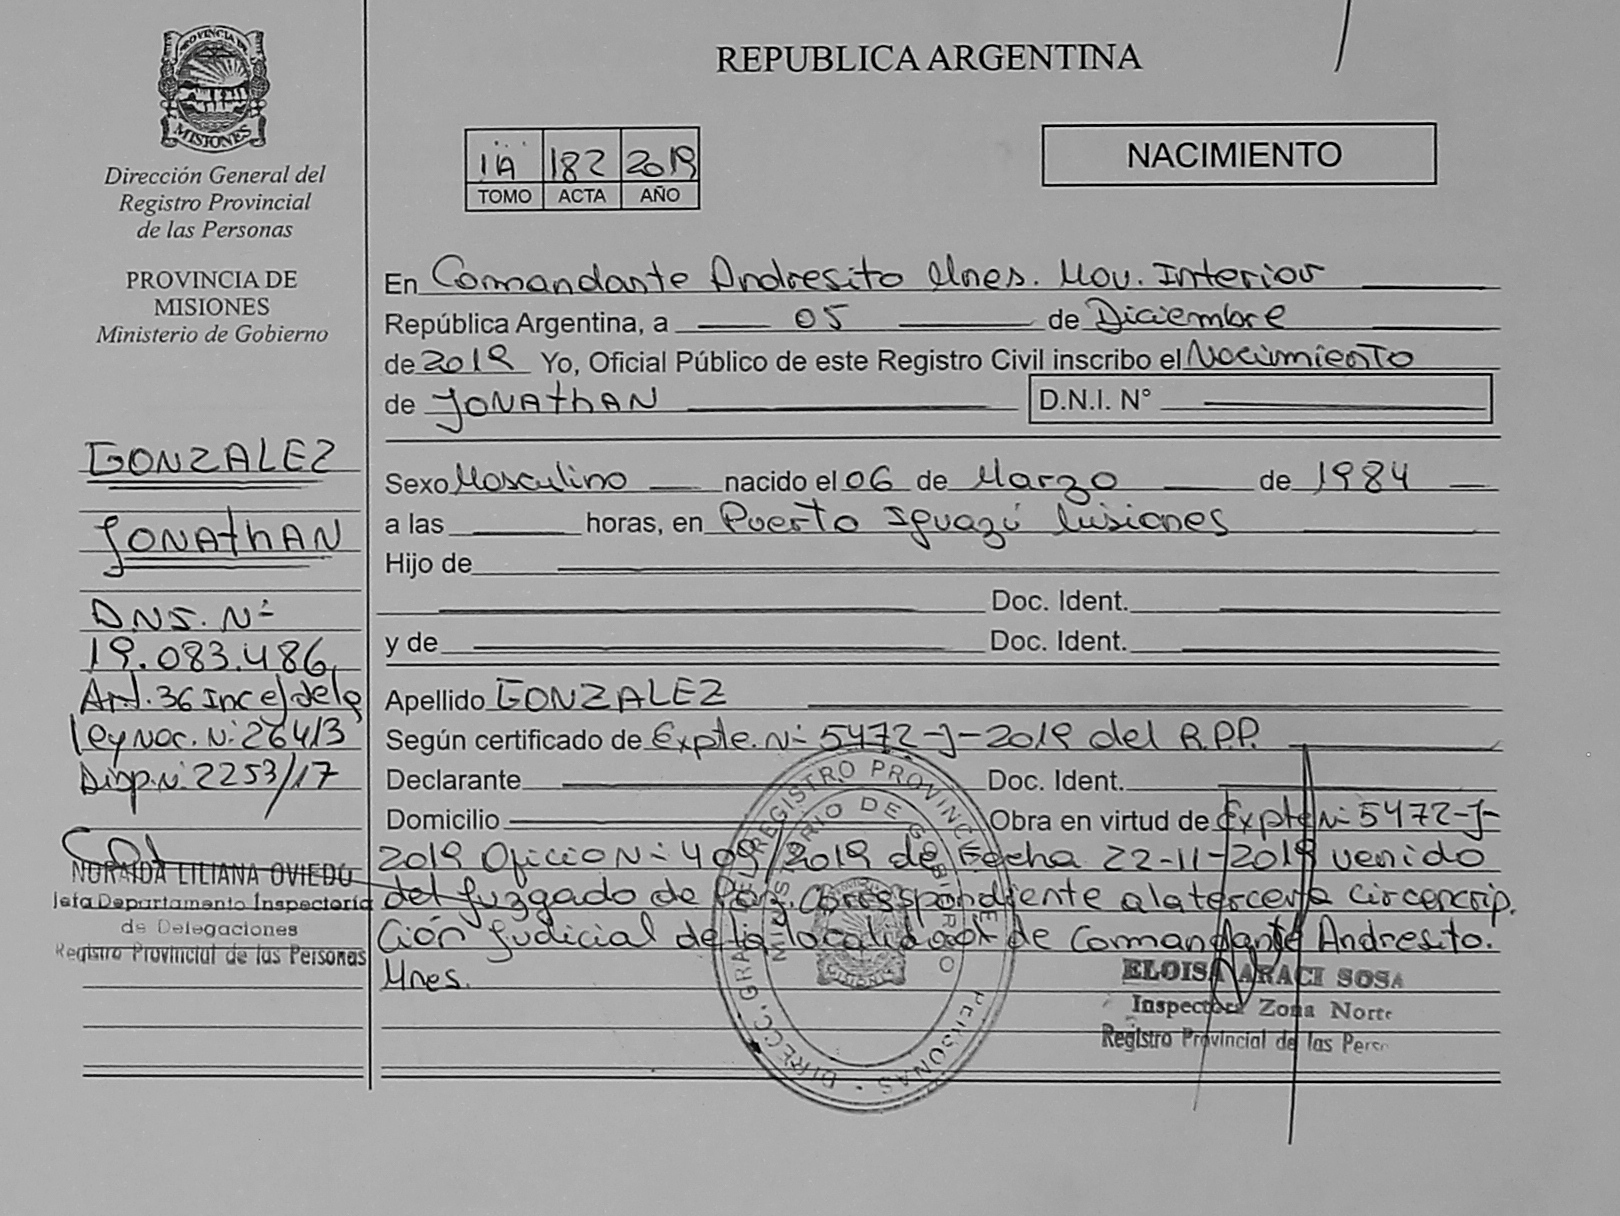 PROVINCIA DE
MISIONES
Dirección General del
Registro Provincial
de las Personas
PROVINCIA DE
MISIONES
Ministerio de Gobierno
GONZALEZ
JONAthAN
D.N.I. Nº
19.083.486
Art. 36 Inc e) de la
ley Nac. Nº 26413
Disp. Nº 2253/17
NORAIDA LILIANA OVIEDO
Jefa Departamento Inspectoría
de Delegaciones
Registro Provincial de las Personas
REPUBLICA ARGENTINA
1A 182 2019
TOMO ACTA AÑO
NACIMIENTO
En Comandante Andresito Mnes. Mov. Interior
República Argentina, a 05 de Diciembre
de 2019 Yo, Oficial Público de este Registro Civil inscribo el Nacimiento
de JONAthAN D.N.I. N°
Sexo Masculino nacido el 06 de Marzo de 1984
a las horas, en Puerto Iguazú Misiones
Hijo de
Doc. Ident.
y de Doc. Ident.
Apellido GONZALEZ
Según certificado de Expte. Nº 5472-J-2019 del R.P.P.
Declarante Doc. Ident.
Domicilio Obra en virtud de Expte Nº 5472-J-
2019 Oficio Nº 409/2019 de Fecha 22-11-2019 venido
del Juzgado de Paz. Correspondiente a la tercera Circencrip.
Ción Judicial de la localidad de Comandante Andresito.
Mnes.
DIRECC. GRAL. DEL REGISTRO PROVINCIAL DE PERSONAS
MINISTERIO DE GOBIERNO
ELOISA ARACI SOSA
Inspectora Zona Norte
Registro Provincial de las Pers